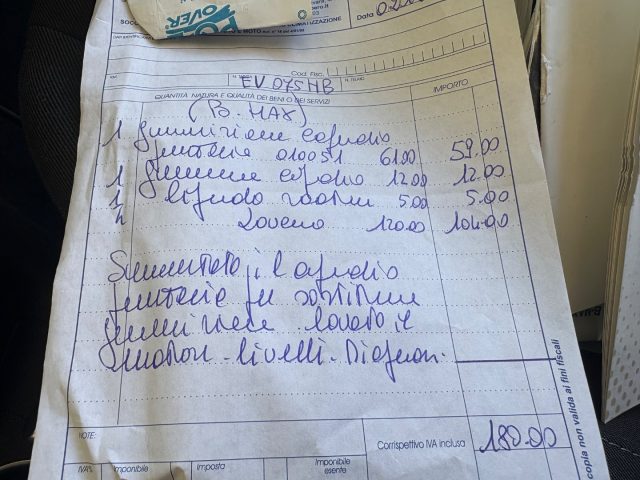 POL
OVER
Data
Cod. Fisc.
EV 075HB
QUANTITÀ NATURA E QUALITÀ DEI BENI O DEI SERVIZI IMPORTO
(B. MAX)
1 guarnizione coperchio
punterie 010051 61.00 59.00
1 12.00 12.00
1 liquido 5.00 5.00
2 Lavoro 120.00 104.00
Smontato il coperchio
punterie per sostituire
guarnizione lavato il
motore. livelli.
NOTE: Corrispettivo IVA inclusa 180.00
IVA% Imponibile Imposta Imponibile esente
copia non valida ai fini fiscali